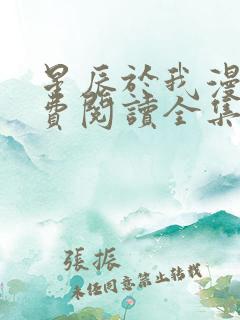 星辰於我漫
費閱讀全集
張振
未任同意禁止转载